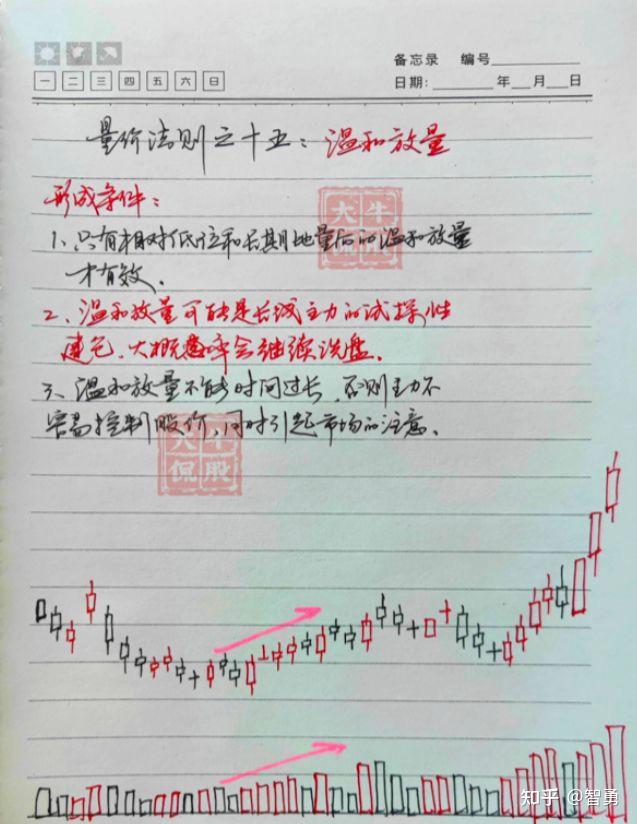 备忘录 编号
一 二 三 四 五 六 日
日期: 年 月 日
量价法则之十五：温和放量
形成条件：
大牛
侃股
1、只有相对低位和长期地量后的温和放量
才有效.
2、温和放量可能是长线主力的试探性
建仓、大概率会继续洗盘.
三、温和放量不能时间过长，否则主力不
容易控制股价，同时引起市场的注意.
大牛
侃股
知乎 @智勇